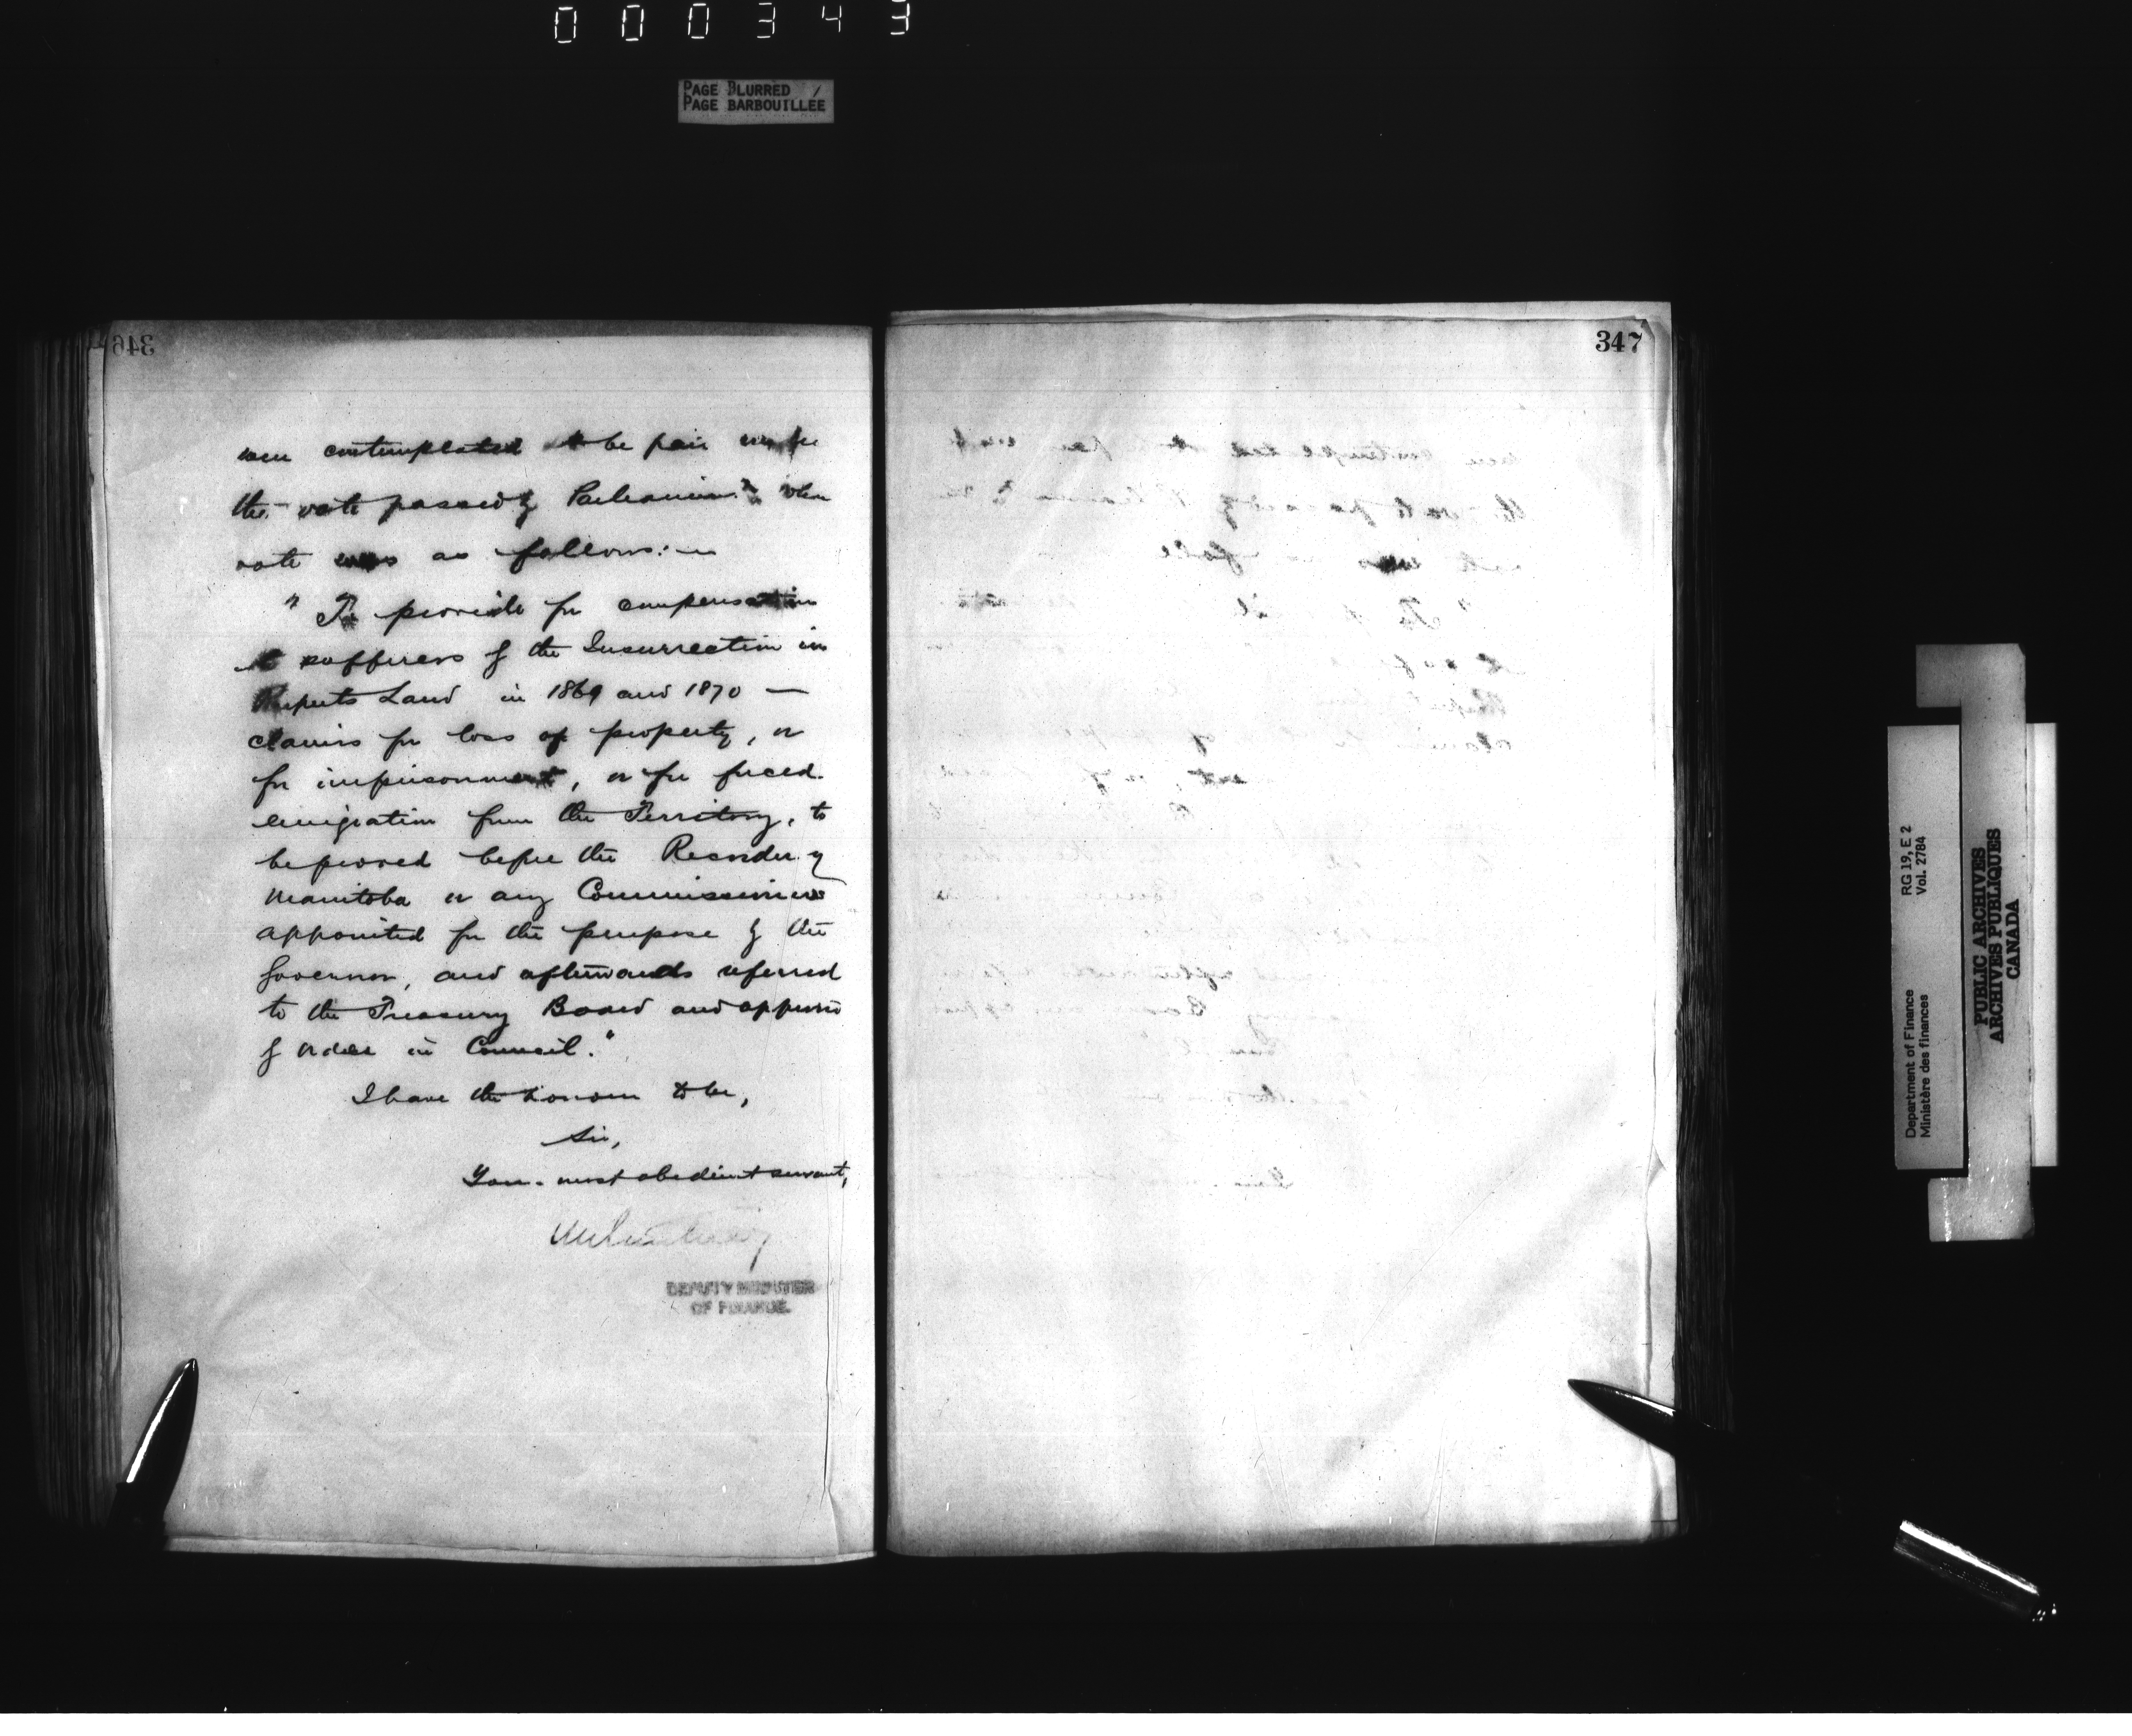 000343
PAGE BLURRED
PAGE BARBOUILLÉE
346
were contemplated to be paid under
the vote passed by Parliament when
vote was as follows:—
"To provide for compensation
to sufferers of the Insurrection in
Ruperts Land in 1869 and 1870 —
claims for loss of property, or
for imprisonment, or for forced
emigration from the Territory, to
be proved before the Recorder of
Manitoba or any Commissioners
appointed for the purpose by the
Governor, and afterwards referred
to the Treasury Board and approved
by Order in Council."
I have the honour to be,
Sir,
Your most obedient servant,
DEPUTY MINISTER
OF FINANCE.
347
RG 19, E 2
Vol. 2784
Department of Finance
Ministère des finances
PUBLIC ARCHIVES
ARCHIVES PUBLIQUES
CANADA